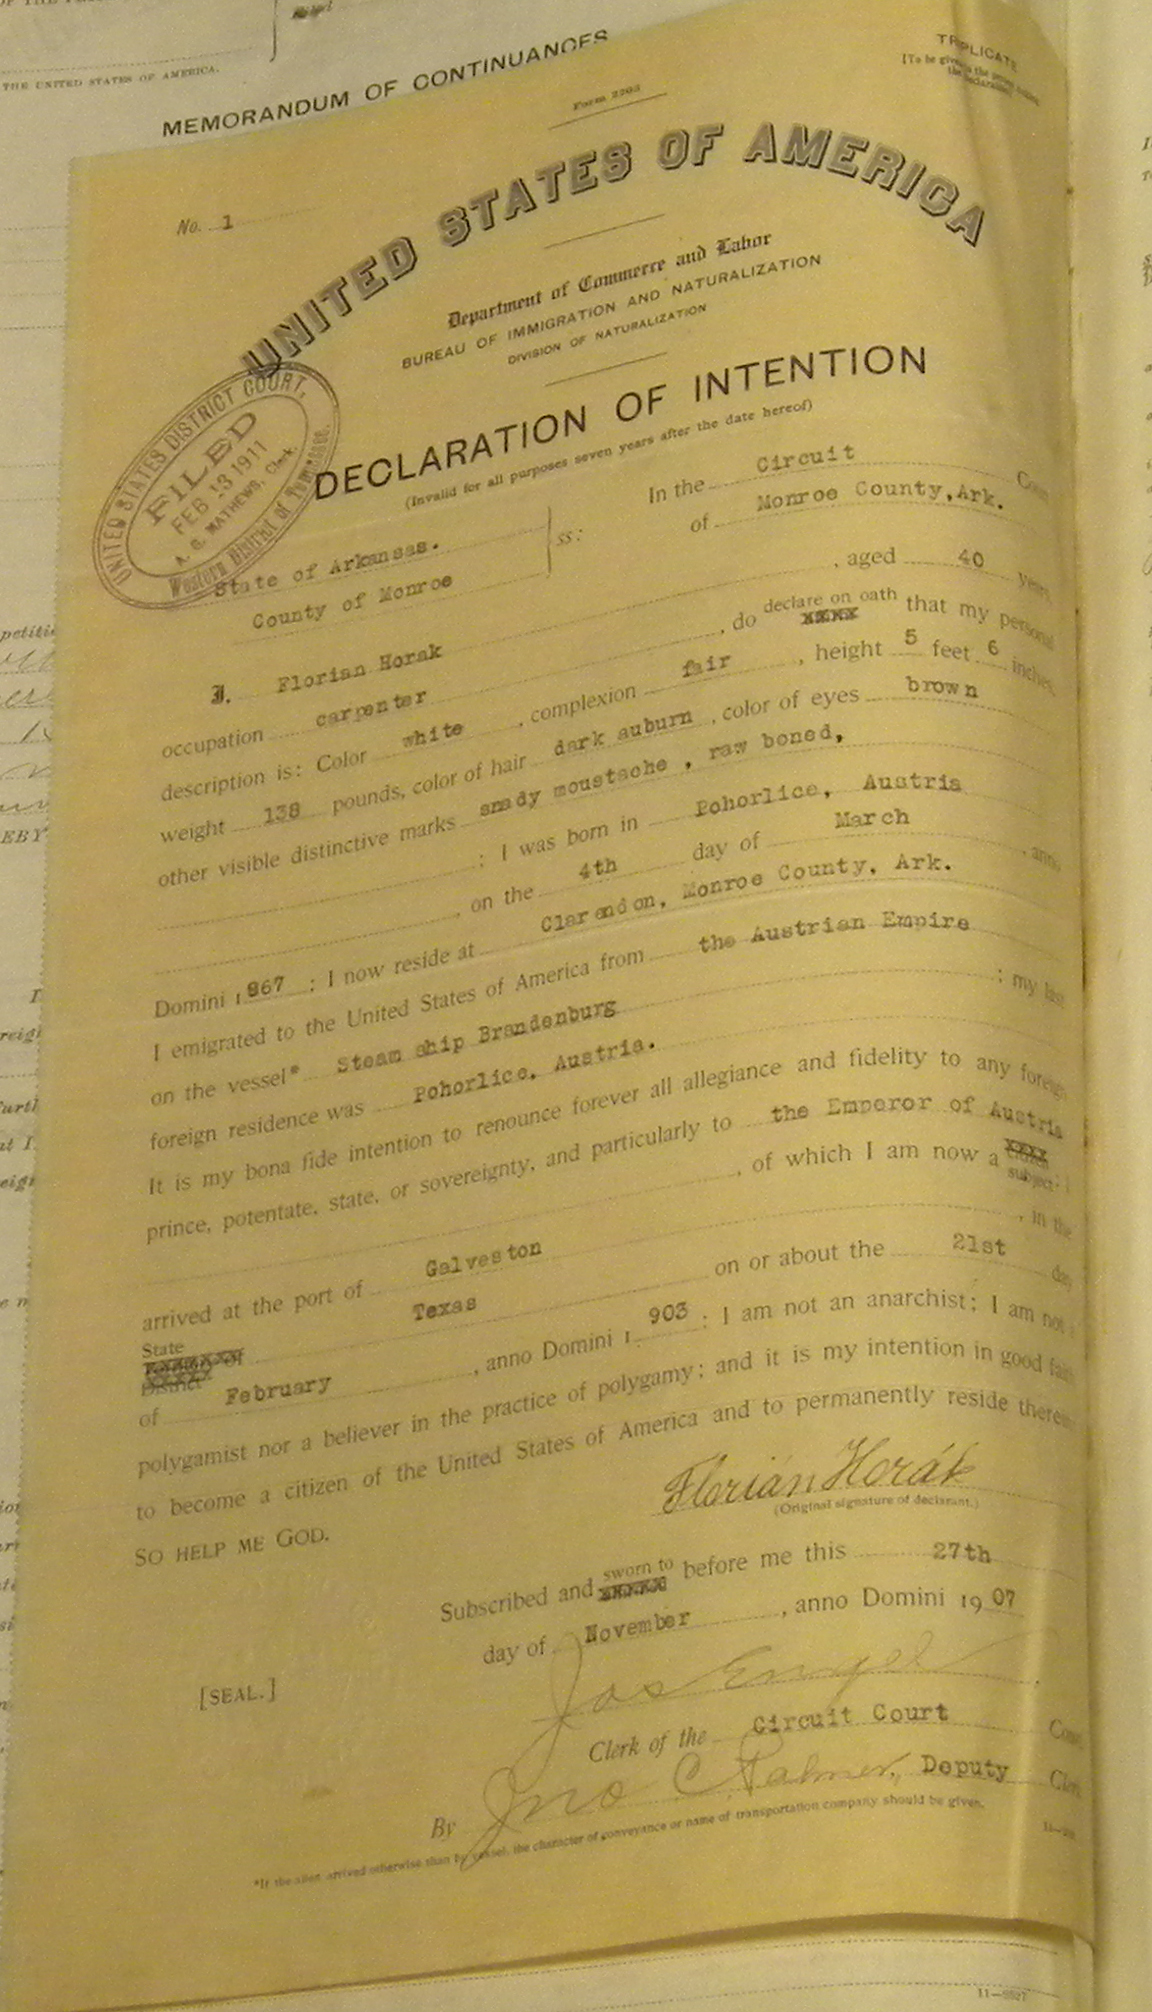 THE UNITED STATES OF AMERICA.
MEMORANDUM OF CONTINUANCES
TRIPLICATE
Form 2203
No. 1
UNITED STATES OF AMERICA
Department of Commerce and Labor
BUREAU OF IMMIGRATION AND NATURALIZATION
DIVISION OF NATURALIZATION
DECLARATION OF INTENTION
(Invalid for all purposes seven years after the date hereof)
UNITED STATES DISTRICT COURT,
FILED
FEB 13 1911
MATHEWS, Clerk.
Western District of Tennessee.
In the Circuit
of Monroe County, Ark.
State of Arkansas.
County of Monroe
ss:
, aged 40 years,
I, Florian Horak
occupation carpenter, do declare on oath xxxx that my personal
description is: Color white, complexion fair, height 5 feet 6 inches,
weight 138 pounds, color of hair dark auburn, color of eyes brown
other visible distinctive marks snady moustache, raw boned,
: I was born in Pohorlice, Austria
, on the 4th day of March, anno
Domini 1867 ; I now reside at Clarendon, Monroe County, Ark.
I emigrated to the United States of America from the Austrian Empire
on the vessel* Steam ship Brandenburg ; my last
foreign residence was Pohorlice, Austria.
It is my bona fide intention to renounce forever all allegiance and fidelity to any foreign
prince, potentate, state, or sovereignty, and particularly to the Emperor of Austria
, of which I am now a xxxx subject; I
arrived at the port of Galveston, in the
State of Texas on or about the 21st day
District
of February, anno Domini 1903 ; I am not an anarchist; I am not a
polygamist nor a believer in the practice of polygamy; and it is my intention in good faith
to become a citizen of the United States of America and to permanently reside therein
SO HELP ME GOD.
Florián Horák
(Original signature of declarant.)
Subscribed and sworn to xxxxx before me this 27th
day of November, anno Domini 1907
[SEAL.]
Jos Engel
Clerk of the Circuit Court
By Jno C. Palmer, Deputy
*If the alien arrived otherwise than by vessel, the character of conveyance or name of transportation company should be given.